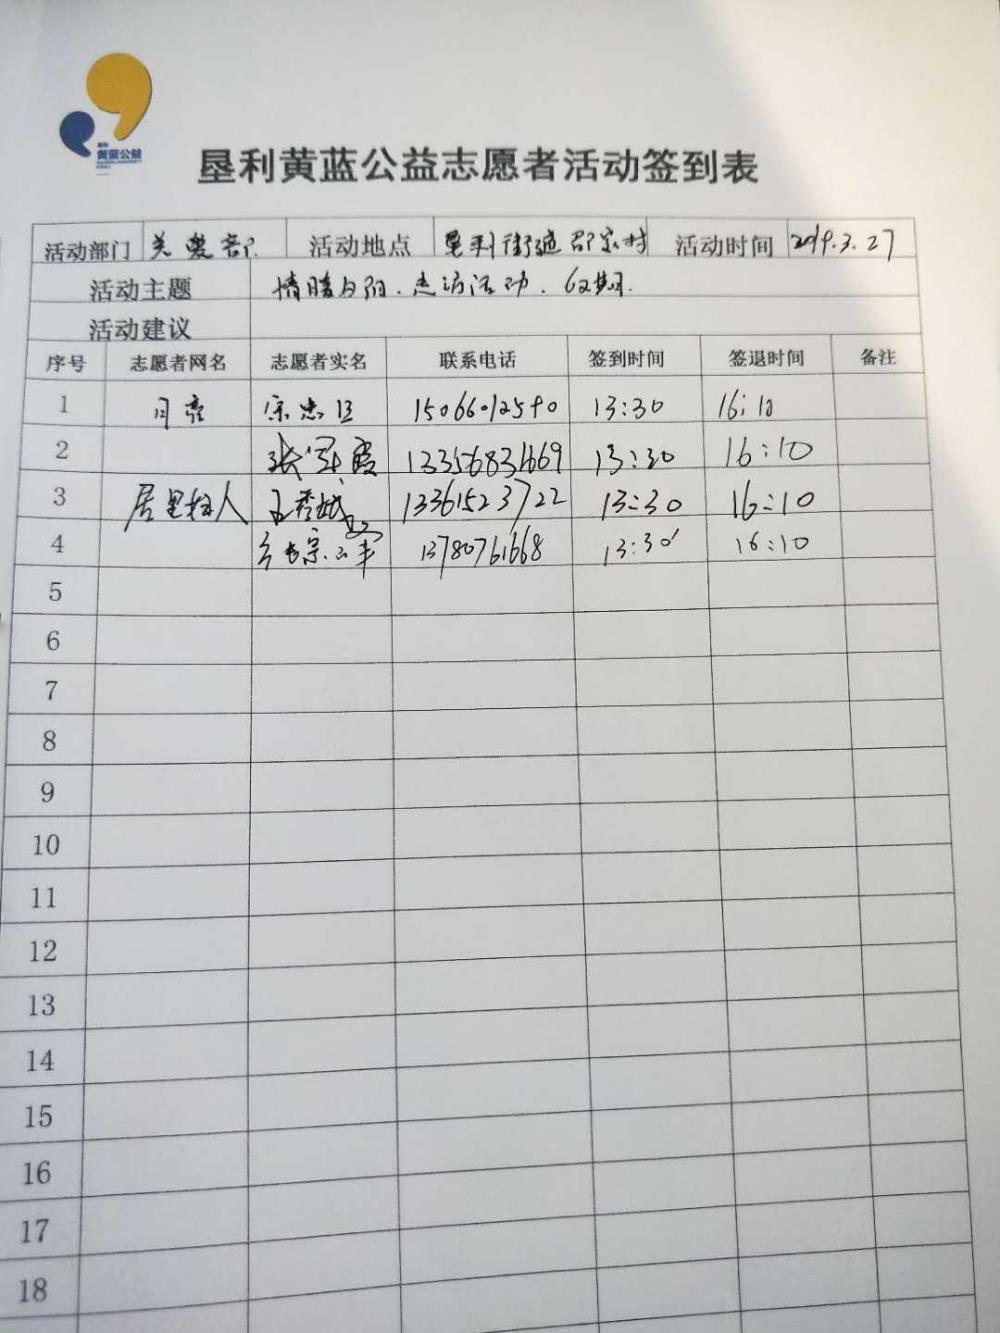 黄蓝公益
垦利黄蓝公益志愿者活动签到表
活动部门 关爱部 活动地点 垦利街道 村 活动时间 2019.3.27
活动主题 情暖夕阳.走访活动.62期.
活动建议
序号 志愿者网名 志愿者实名 联系电话 签到时间 签退时间 备注
1 月亮 宋 15066012590 13:30 16:10
2 张军霞 13356831669 13:30 16:10
3 居里夫人 王秀 13361523722 13:30 16:10
4 宗 13780761668 13:30 16:10
5
6
7
8
9
10
11
12
13
14
15
16
17
18